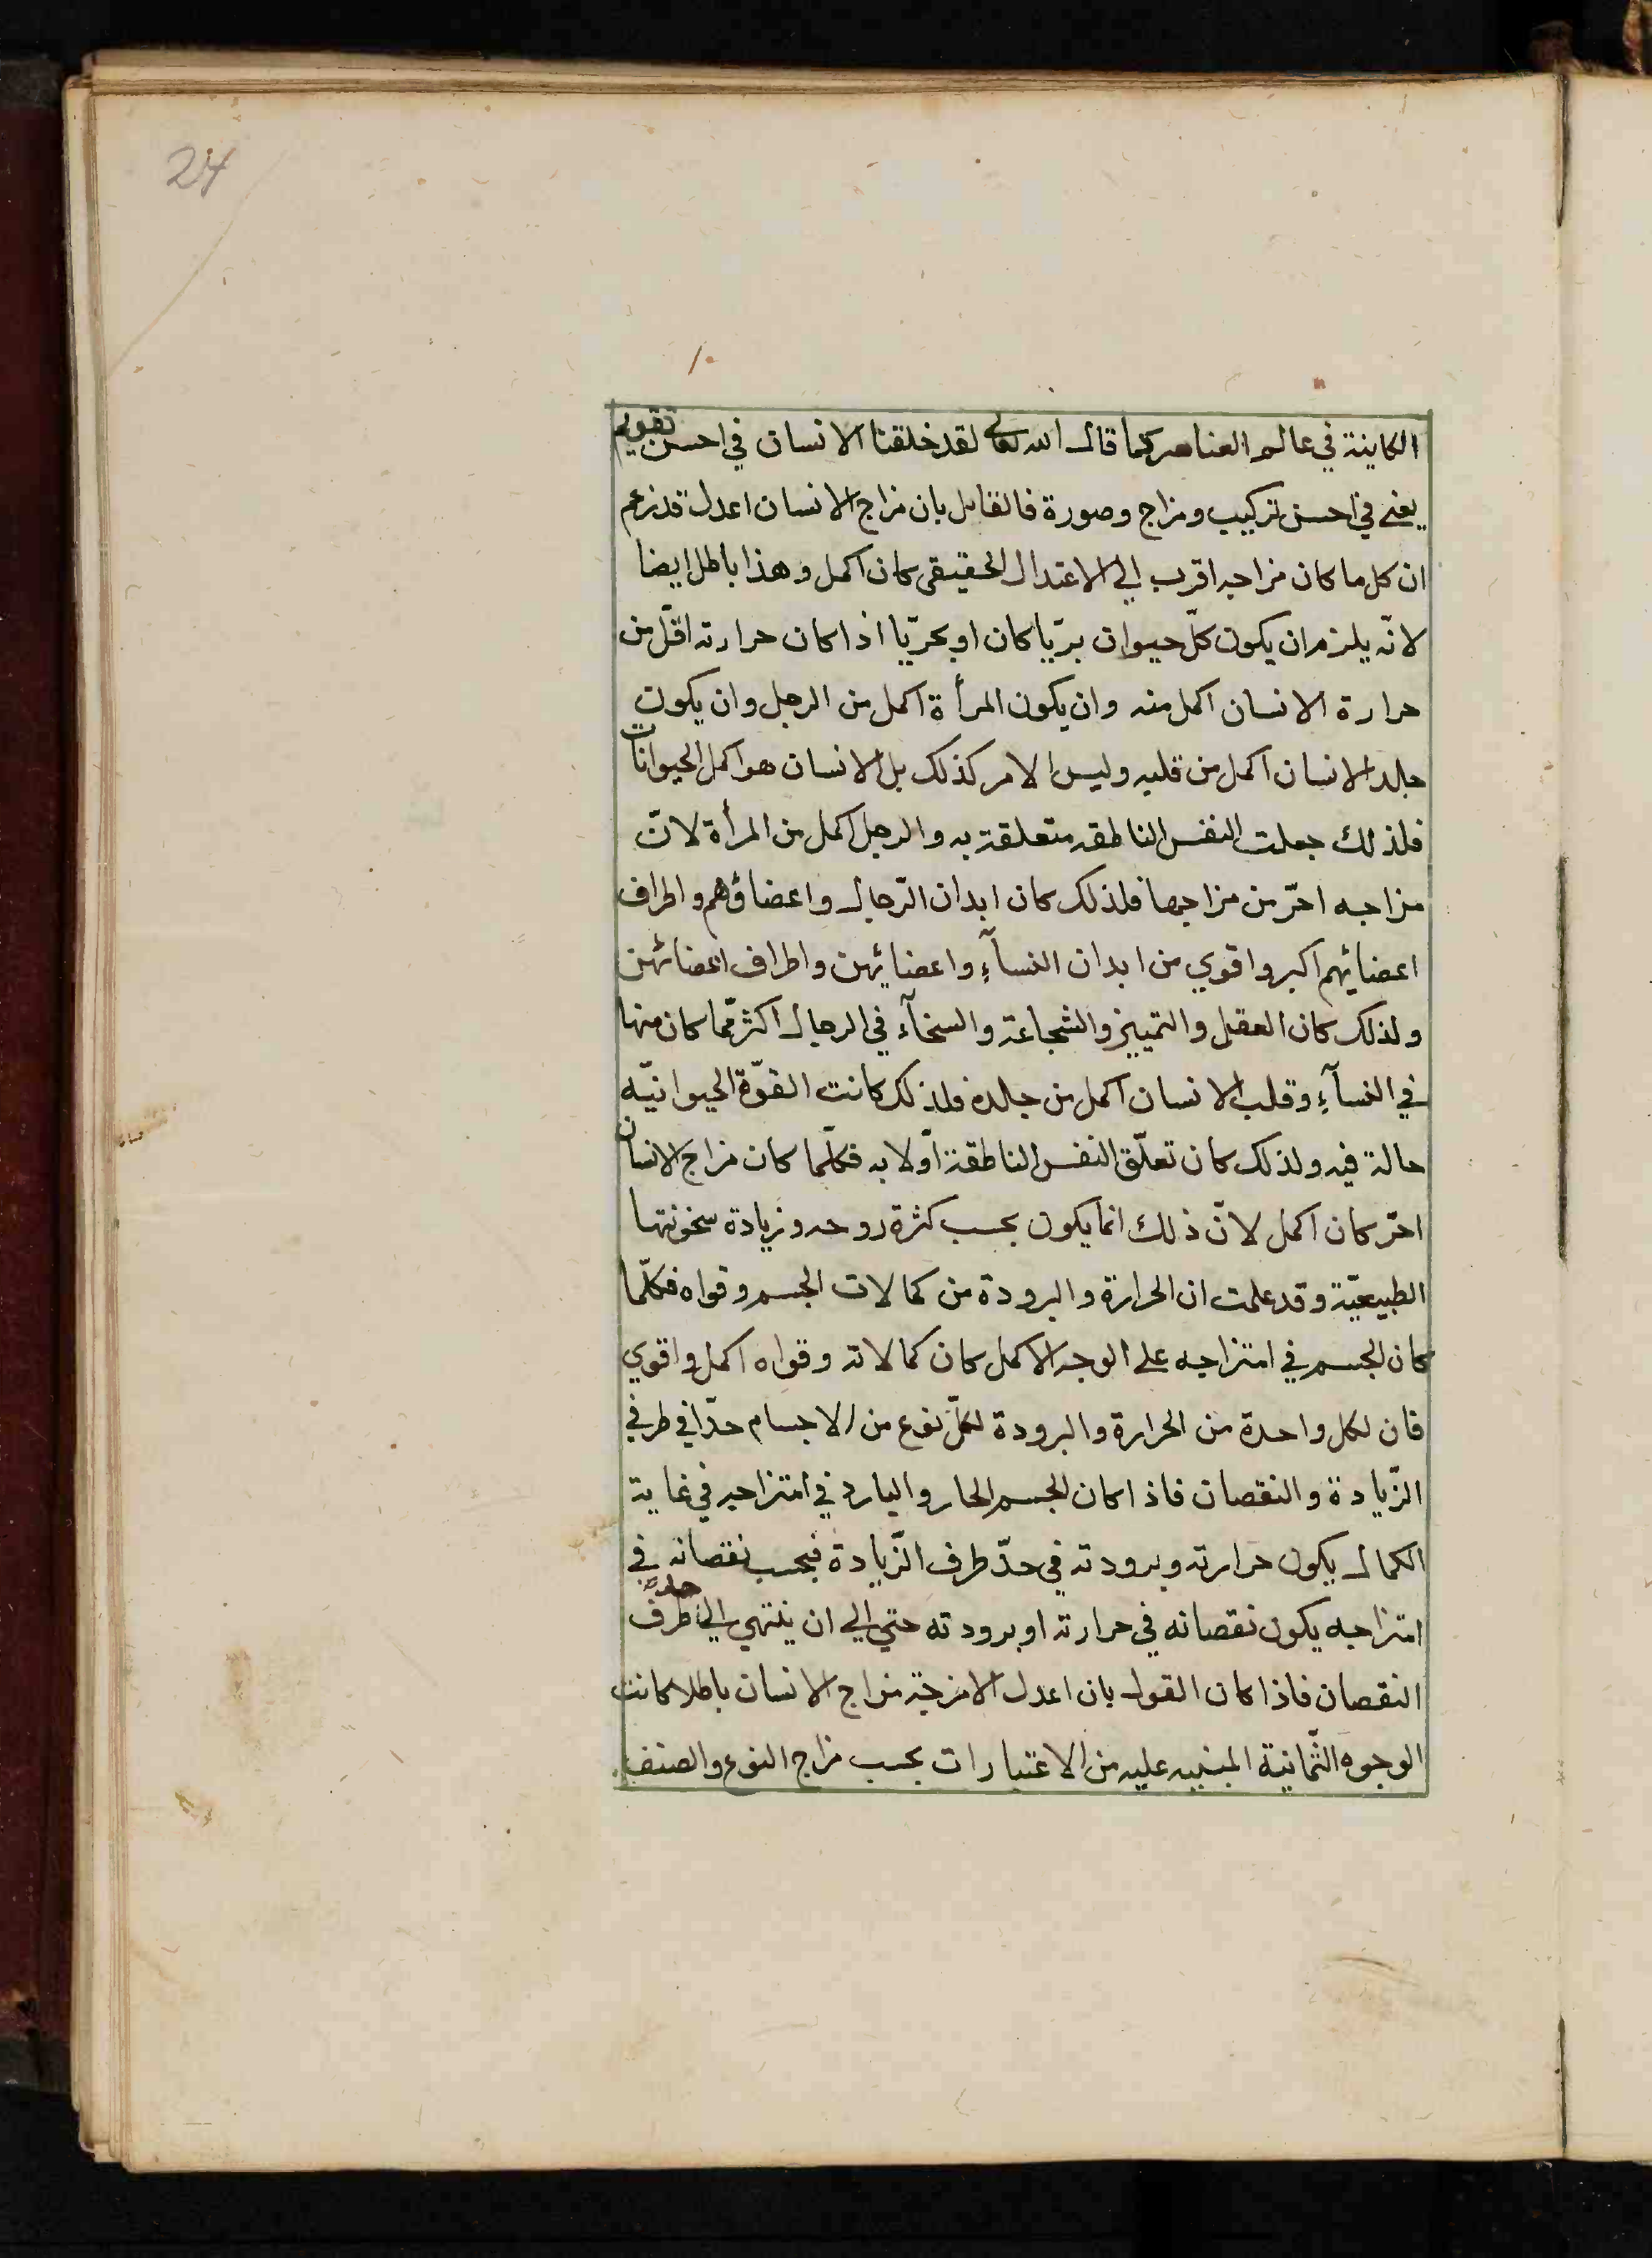 24
١٠
الكاينة في عالم العناصر كما قال الله تعالى لقد خلقنا الانسان في احسن تقويم
يعني في احسن تركيب ومزاج وصورة فالقايل بان مزاج الانسان اعدل قد زعم
ان كل ما كان مزاجه اقرب الي الاعتدال الحقيقي كان اكمل وهذا باطل ايضا
لانّه يلزم ان يكون كلّ حيوان برّيا كان او بحريّا اذا كان حرارته اقلّ من
حرارة الانسان اكمل منه وان يكون المرأة اكمل من الرجل وان يكون
جلد الانسان اكمل من قلبه وليس الامر كذلك بل الانسان هو اكمل الحيوانات
فلذلك جعلت النفس الناطقه متعلقة به والرجل اكمل من المرأة لانّ
مزاجه احرّ من مزاجها فلذلك كان ابدان الرّجال واعضاؤهم واطراف
اعضائهم اكبر واقوي من ابدان النسآءِ واعضائهن واطراف اعضائهن
ولذلك كان العقل والتمييز والشجاعة والسخآء في الرجال اكثر ممّا كان منها
في النسآءِ وقلب الانسان اكمل من جلده فلذلك كانت القوّة الحيوانيّه
حالة فيه ولذلك كان تعلّق النفس الناطقة اوّلا به فكلّما كان مزاج الانسان
احرّ كان اكمل لانّ ذلك انما يكون بحسب كثرة روحه وزيادة سخونتها
الطبيعيّة وقد علمت ان الحرارة والبرودة من كمالات الجسم وقواه فكلّما
كان الجسم في امتزاجه على الوجه الاكمل كان كمالاته وقواه اكمل واقوي
فان لكل واحدة من الحرارة والبرودة لكلّ نوع من الاجسام حدّا في طرفي
الزّيادة والنقصان فاذا كان الجسم الحار والبارد في امتزاجه في غاية
الكمال يكون حرارته وبرودته في حدّ طرف الزّيادة فبحسب نقصانه في
امتزاجه يكون نقصانه في حرارته او برودته حتي الي ان ينتهي الي حد طرف
النقصان فاذا كان القول بان اعدل الامزجة مزاج الانسان باطلا كانت
الوجوه الثّمانية المبنيه عليه من الاعتبارات بحسب مزاج النوع والصنف